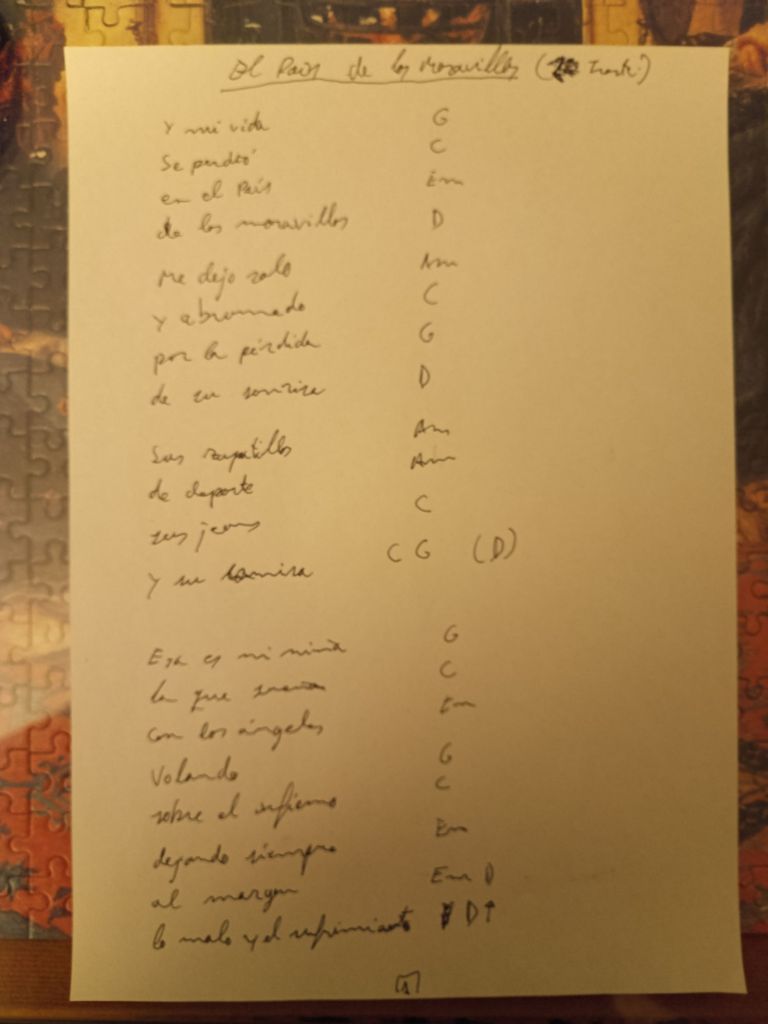 El País de las maravillas (2º Traste)
Y mi vida G
Se perdió C
en el País Em
de las maravillas D
Me dejo solo Am
Y abrumado C
por la pérdida G
de su sonrisa D
Sus zapatillas Am
de deporte Am
sus jeans C
Y su camisa C G (D)
Esa es mi niña G
la que sueña C
con los ángeles Em
Volando G
sobre el infierno C
dejando siempre Em
al margen Em D
lo malo y el sufrimiento D↑
1